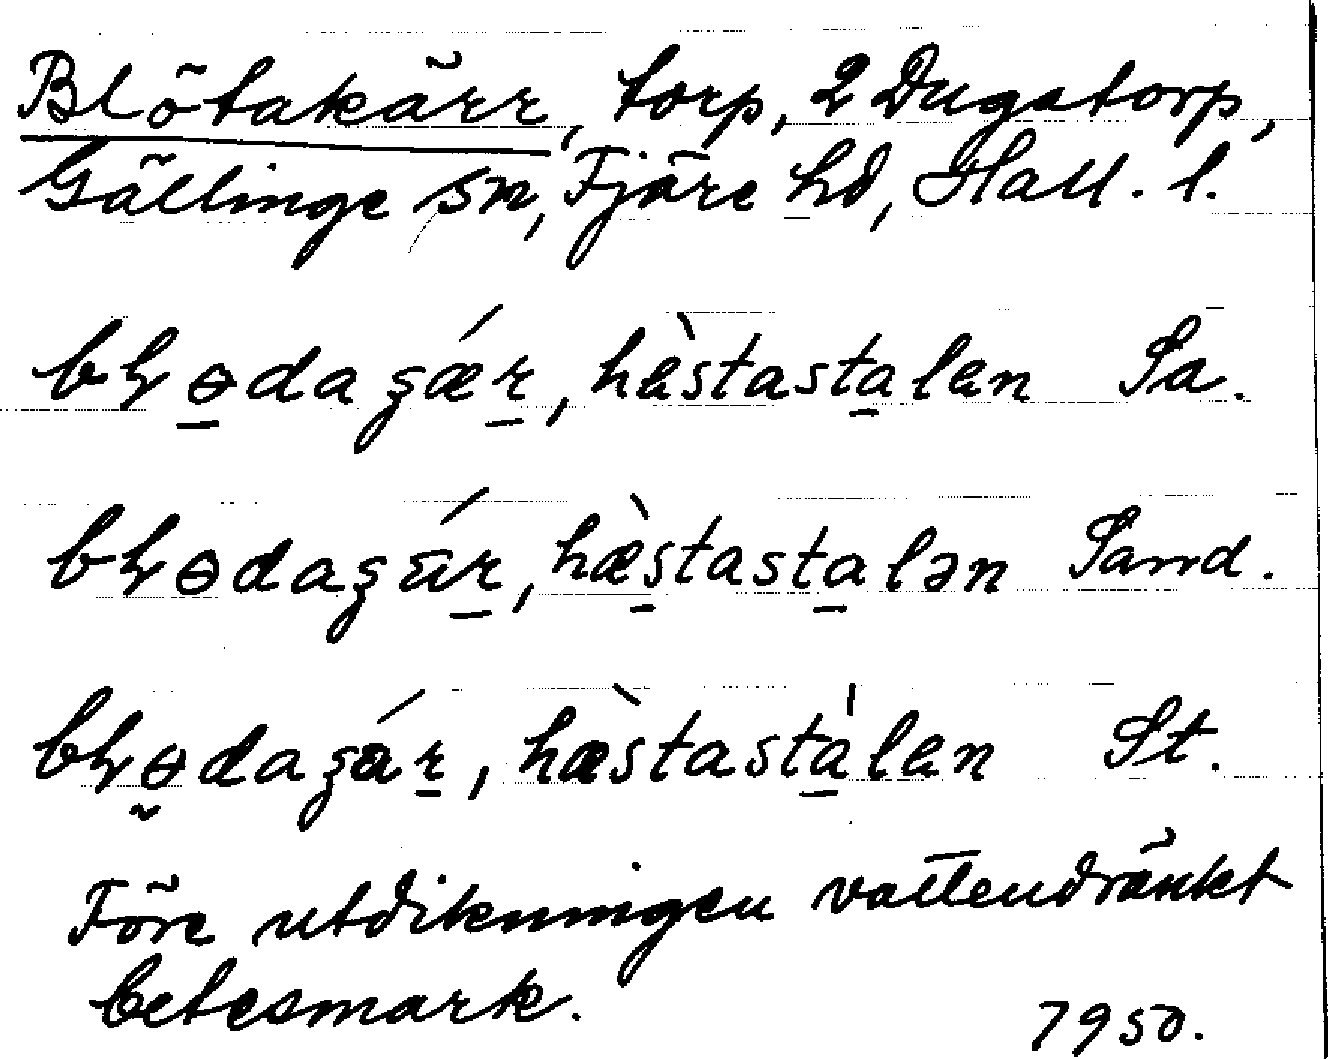 Blötakärr, torp, 2 Dugatorp,
Gällinge sn, Fjäre hd, Hall. l.
bɫɵdaʒǽr, hæ̀stastalen Sa.
bɫɵdaʒǽr, hæ̀stastalən Sand.
bɫɵdaʒár, hæ̀stastàlen St.
Före utdikningen vattendränkt
betesmark.
7950.